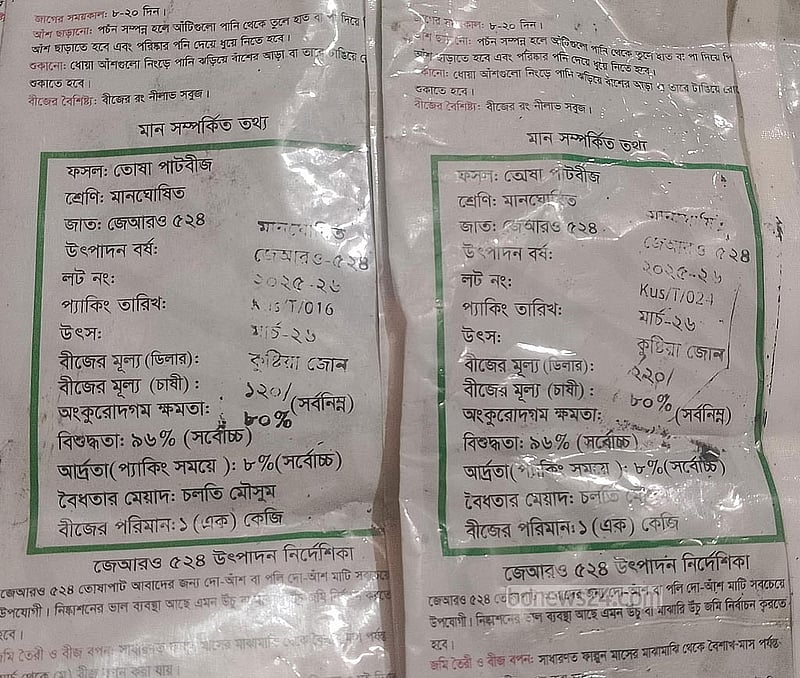 জাগের সময়কাল: ৮-২০ দিন।
আঁশ ছাড়ানো: পচন সম্পন্ন হলে আঁটিগুলো পানি থেকে তুলে হাত বা পা দিয়ে
আঁশ ছাড়াতে হবে এবং পরিষ্কার পানি দেয়ে ধুয়ে নিতে হবে।
শুকানো: ধোয়া আঁশগুলো নিংড়ে পানি ঝড়িয়ে বাঁশের আড়া বা তারে টাঙিয়ে
শুকাতে হবে।
বীজের বৈশিষ্ট্য: বীজের রং নীলাভ সবুজ।
মান সম্পর্কিত তথ্য
ফসল: তোষা পাটবীজ
শ্রেণি: মানঘোষিত
জাত: জেআরও ৫২৪
মানঘোষিত
উৎপাদন বর্ষ:
জেআরও-৫২৪
লট নং:
২০২৫-২৬
প্যাকিং তারিখ:
Kus/T/016
উৎস:
মার্চ-২৬
বীজের মূল্য (ডিলার):
কুষ্টিয়া জোন
বীজের মূল্য (চাষী) :
১২০/
অংকুরোদগম ক্ষমতা:
৮০% (সর্বনিম্ন)
বিশুদ্ধতা: ৯৬% (সর্বোচ্চ)
আর্দ্রতা(প্যাকিং সময়ে ): ৮%(সর্বোচ্চ)
বৈধতার মেয়াদ: চলতি মৌসুম
বীজের পরিমান: ১ (এক) কেজি
জেআরও ৫২৪ উৎপাদন নির্দেশিকা
জেআরও ৫২৪ তোষাপাট আবাদের জন্য দো-আঁশ বা পলি দো-আঁশ মাটি সবচেয়ে
উপযোগী। নিষ্কাশনের ভাল ব্যবস্থা আছে এমন উঁচু বা
হবে।
জমি তৈরী ও বীজ বপন: সাধারণত ফাল্গুন মাসের মাঝামাঝি থেকে
জাগের সময়কাল: ৮-২০ দিন।
আঁশ ছাড়ানো: পচন সম্পন্ন হলে আঁটিগুলো পানি থেকে তুলে হাত বা পা দিয়ে
আঁশ ছাড়াতে হবে এবং পরিষ্কার পানি দেয়ে ধুয়ে নিতে হবে।
শুকানো: ধোয়া আঁশগুলো নিংড়ে পানি ঝড়িয়ে বাঁশের আড়া বা তারে টাঙিয়ে
শুকাতে হবে।
বীজের বৈশিষ্ট্য: বীজের রং নীলাভ সবুজ।
মান সম্পর্কিত তথ্য
ফসল: তোষা পাটবীজ
শ্রেণি: মানঘোষিত
জাত: জেআরও ৫২৪
উৎপাদন বর্ষ:
জেআরও ৫২৪
লট নং:
২০২৫-২৬
প্যাকিং তারিখ:
Kus/T/024
উৎস:
মার্চ-২৬
বীজের মূল্য (ডিলার):
কুষ্টিয়া জোন
বীজের মূল্য (চাষী) :
২২০/
অংকুরোদগম ক্ষমতা:
৮০% (সর্বনিম্ন)
বিশুদ্ধতা: ৯৬% (সর্বোচ্চ)
আর্দ্রতা(প্যাকিং সময়ে ): ৮%(সর্বোচ্চ)
বৈধতার মেয়াদ: চলতি
বীজের পরিমান: ১ (এক) কেজি
জেআরও ৫২৪ উৎপাদন নির্দেশিকা
জেআরও ৫২৪ বা পলি দো-আঁশ মাটি সবচেয়ে
উপযোগী। নিষ্কাশনের ভাল ব্যবস্থা আছে এমন উঁচু বা মাঝারি উঁচু জমি নির্বাচন করতে
হবে।
জমি তৈরী ও বীজ বপন: সাধারণত ফাল্গুন মাসের মাঝামাঝি থেকে বৈশাখ-মাস পর্যন্ত